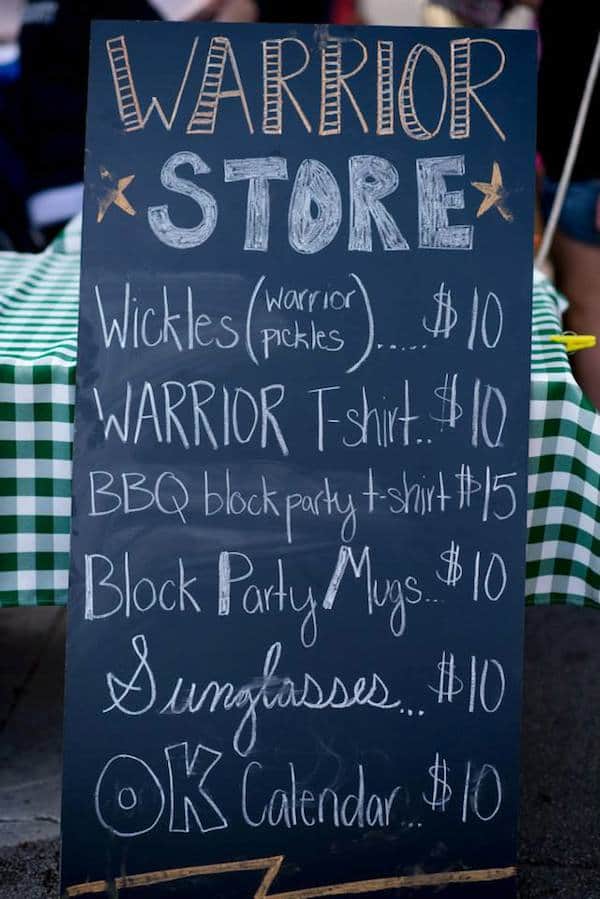 WARRIOR
STORE
Wickles (warrior pickles)..... $10
WARRIOR T-shirt.. $10
BBQ block party t-shirt $15
Block Party Mugs... $10
Sunglasses... $10
OK Calendar... $10